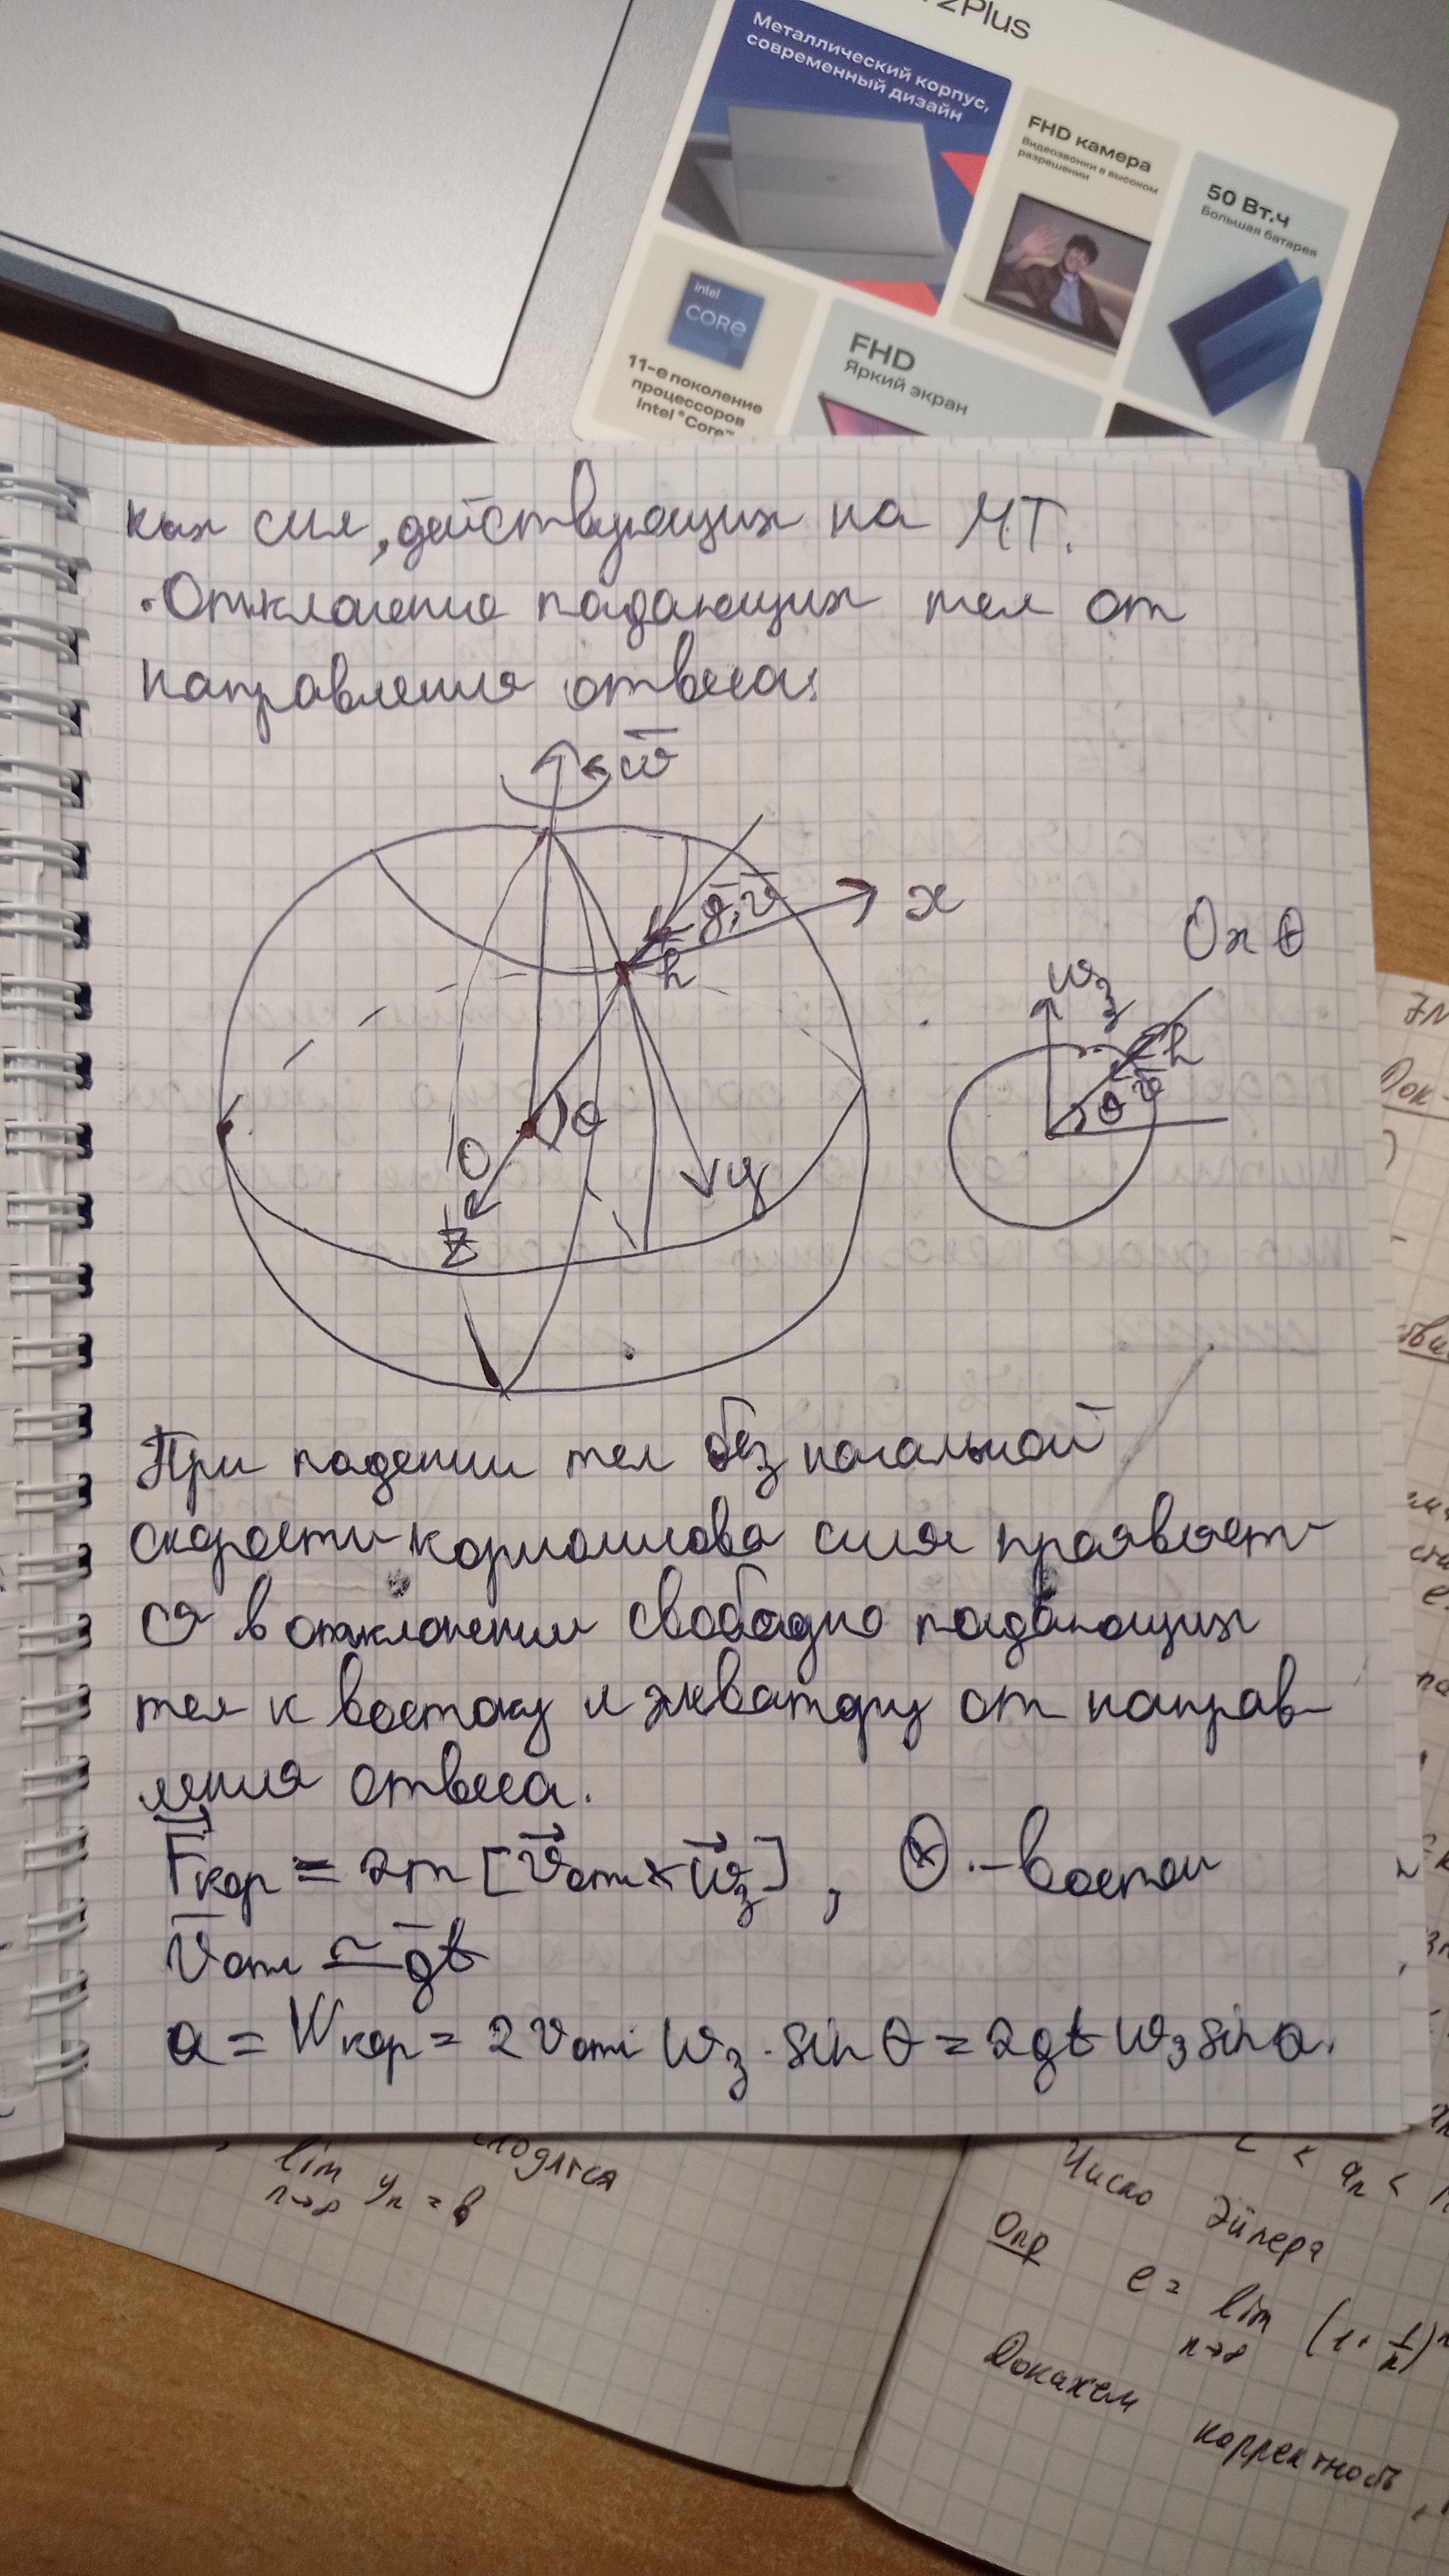 z2Plus
Металлический корпус,
современный дизайн
FHD камера
Видеозвонки в высоком
разрешении
50 Вт.ч
Большая батарея
intel
CORE
11-е поколение
процессоров
Intel® Core™
FHD
Яркий экран
ких сил, действующих на МТ.
·Отклонение падающих тел от
направления отвеса:
ω̄
ḡ, v̄
x
h
O
θ
y
z
Ox ⊕
ω₃
h
θ v̄
При падении тел без начальной
скорости кориолисова сила проявляет-
ся в отклонении свободно падающих
тел к востоку и экватору от направ-
ления отвеса.
F⃗кор = 2m [v⃗отн × ω⃗₃], ⊗ - восток
v̄отн ≃ ḡt
a = Wкор = 2vотн ω₃ · sin θ = 2gt ω₃ sin θ.
lim yₙ = b
n→∞
Число Эйлера
Опр e = lim (1 + 1/n)ⁿ
n→∞
Докажем корректность,